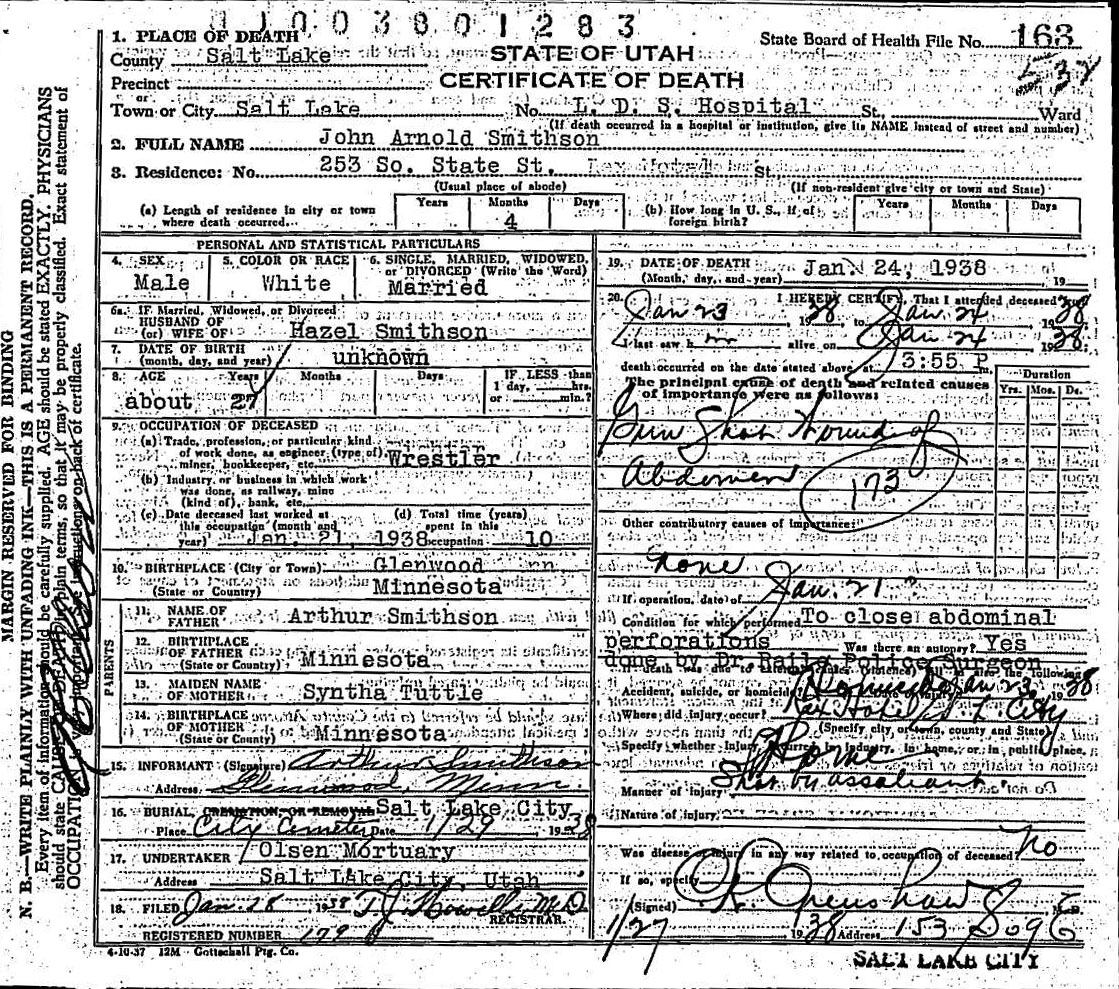 01003801283
1. PLACE OF DEATH
County Salt Lake
STATE OF UTAH
CERTIFICATE OF DEATH
State Board of Health File No. 163
Precinct
or
Town or City Salt Lake No. L. D. S. Hospital St., Ward
(If death occurred in a hospital or institution, give its NAME instead of street and number)
2. FULL NAME John Arnold Smithson
3. Residence: No. 253 So. State St. St.
(Usual place of abode)
(If non-resident give city or town and State)
(a) Length of residence in city or town where death occurred
Years Months Days
4
(b) How long in U. S., if of foreign birth?
Years Months Days
PERSONAL AND STATISTICAL PARTICULARS
4. SEX
Male
5. COLOR OR RACE
White
6. SINGLE, MARRIED, WIDOWED, or DIVORCED (Write the Word)
Married
6a. If Married, Widowed, or Divorced
HUSBAND OF
(or) WIFE OF Hazel Smithson
7. DATE OF BIRTH
(month, day, and year) unknown
8. AGE Years Months Days
IF LESS than
1 day, hrs.
or min.?
about 27
9. OCCUPATION OF DECEASED
(a) Trade, profession, or particular kind
of work done, as engineer (type of)
miner, bookkeeper, etc. Wrestler
(b) Industry or business in which work
was done, as railway, mine
(kind of), bank, etc.
(c) Date deceased last worked at
this occupation (month and
year) Jan. 21, 1938
(d) Total time (years)
spent in this
occupation 10
10. BIRTHPLACE (City or Town) Glenwood
(State or Country) Minnesota
PARENTS
11. NAME OF FATHER Arthur Smithson
12. BIRTHPLACE
OF FATHER
(State or Country) Minnesota
13. MAIDEN NAME
OF MOTHER Syntha Tuttle
14. BIRTHPLACE
OF MOTHER
(State or Country) Minnesota
15. INFORMANT (Signature) Arthur Smithson
Address Glenwood, Minn.
16. BURIAL, CREMATION OR REMOVAL Salt Lake City
Place City Cemetery Date 1/29 1938
17. UNDERTAKER Olsen Mortuary
Address Salt Lake City, Utah
18. FILED Jan 28 1938 T. J. Howells M.D.
REGISTRAR.
REGISTERED NUMBER
4-10-37 12M Gottschall Ptg. Co.
19. DATE OF DEATH
(Month, day, and year) Jan. 24, 1938 19
20. I HEREBY CERTIFY, That I attended deceased from
Jan 23 1938 to Jan 24 1938
I last saw him alive on Jan 24 1938
death occurred on the date stated above at 3:55 P m.
The principal cause of death and related causes
of importance were as follows:
Duration
Yrs. Mos. Ds.
Gun Shot Wound of
Abdomen
173
Other contributory causes of importance:
none
If operation, date of Jan. 21
Condition for which performed To close abdominal
perforations Was there an autopsy? Yes
done by Dr. Police Surgeon
If death was due to external causes (violence) fill in also the following:
Accident, suicide, or homicide? Homicide Jan 23, 1938
Where did injury occur? Rex Hotel S. L. City
(Specify city or town, county and State)
Specify whether injury occurred in industry, in home, or in public place.
Home
Manner of injury Shot by assailant
Nature of injury
Was disease or injury in any way related to occupation of deceased? No
If so, specify
(Signed) Openshaw
1/27 1938 Address 153 So 9 E
SALT LAKE CITY
MARGIN RESERVED FOR BINDING
N. B.—WRITE PLAINLY WITH UNFADING INK—THIS IS A PERMANENT RECORD.
Every item of information should be carefully supplied. AGE should be stated EXACTLY. PHYSICIANS
should state CAUSE OF DEATH in plain terms, so that it may be properly classified. Exact statement of
OCCUPATION is very important. See instructions on back of certificate.